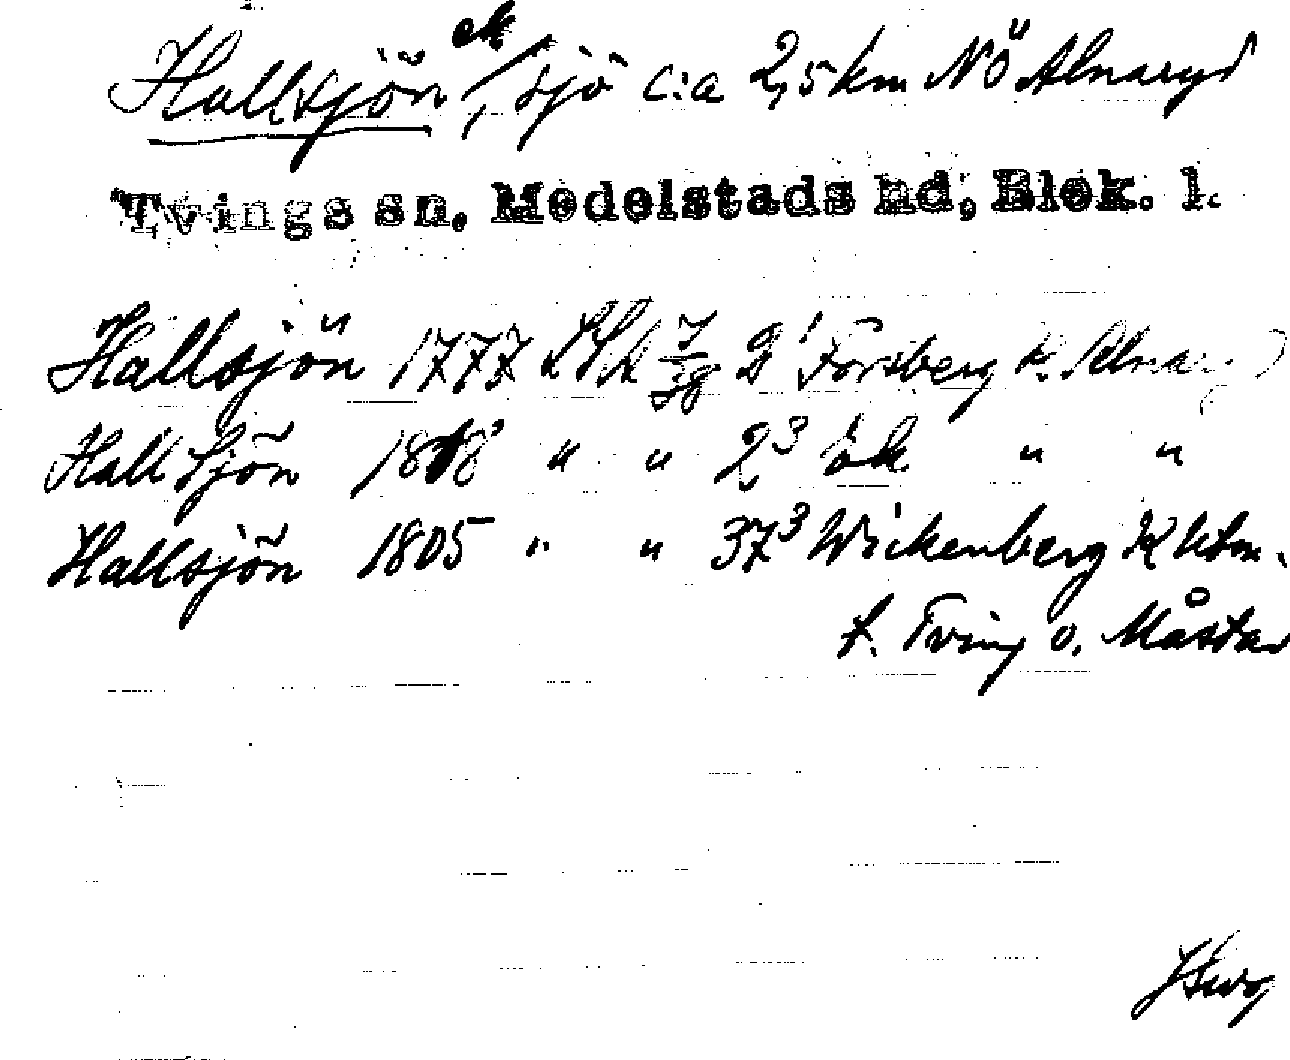 Hallsjön ek, sjö c:a 2,5 km NÖ Alnaryd
Tvings sn, Medelstads hd, Blek. l.
Hallsjön 1777 LSA 7/38 2¹ Forsberg k. Alnaryd
Hall Sjön 1818 " " 2³ ök " "
Hallsjön 1805 " " 37³ Wickenberg K utm.
f. Tving o. Måstad